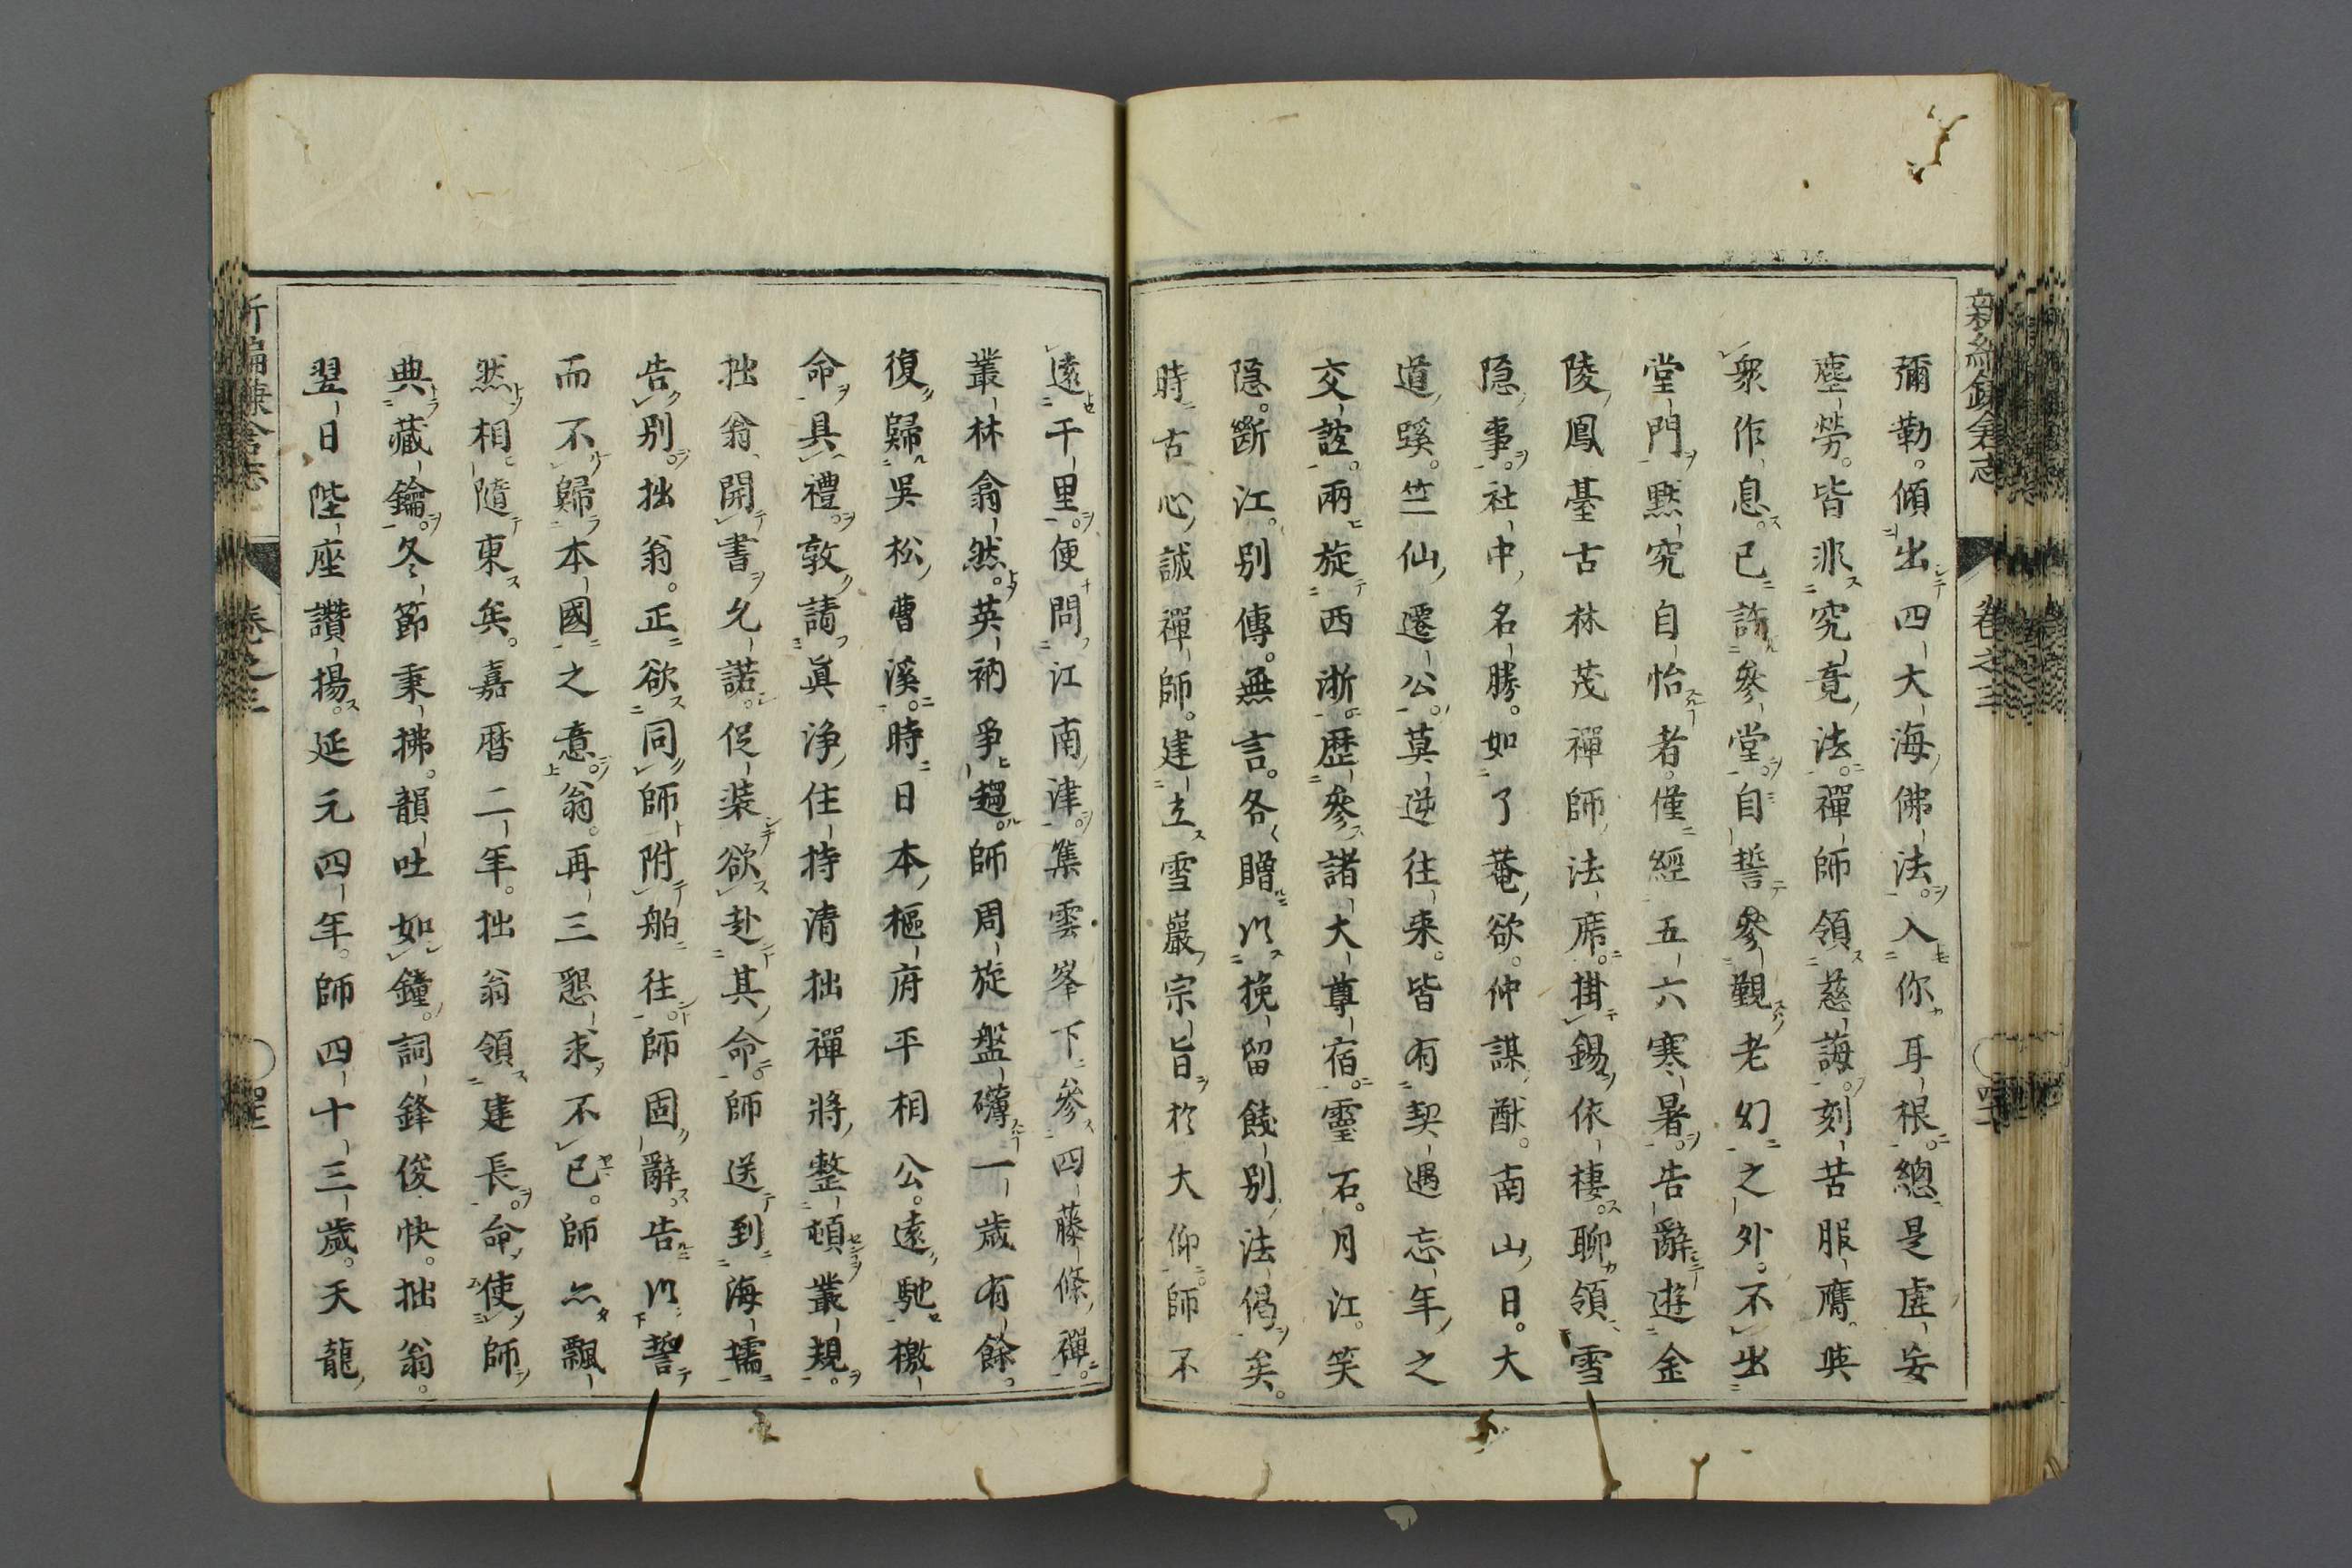 彌勒。傾出四大海佛法。入你耳根。總是虛妄
塵勞。皆非究竟法。禪師領慈誨。刻苦服膺。英
衆作息。已許參堂。自誓參覲老幻之外。不出
堂門。默究自怡者。僅經五六寒暑。告辭遊金
陵鳳臺古林茂禪師法席。掛錫依棲。聊領雪
隱事。社中名勝。如了菴欲。仲謀猷。南山日。大
道蹊。竺仙遷公。莫逆往來。皆有契遇忘年之
交誼。兩旋西浙。歷參諸大尊宿。靈石。月江。笑
隱。斷江。別傳。無言。各贈以挽留餞別法偈矣。
時古心誠禪師。建立雪巖宗旨於大仰。師不
遠千里。便問江南津。集雲峯下參四藤條禪。
叢林翕然。英衲爭趨。師周旋盤礴一歲有餘。
復歸吳松曹溪。時日本樞府平相公。遠馳檄
命。具禮。敦請眞淨住持清拙禪將整頓叢規。
拙翁開書允諾。促裝欲赴其命。師送到海壖
告別。拙翁。正欲同師附舶往。師固辭。告以誓
而不歸本國之意。翁。再三懇求不已。師亦飄
然相隨東矣。嘉曆二年。拙翁領建長命。使師
典藏鑰。冬節秉拂。韻吐如鐘。詞鋒俊快。拙翁。
翌日陞座讚揚。延元四年。師四十三歲。天龍
新編鎌倉志
卷之三